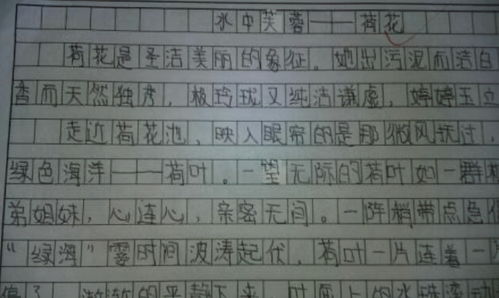 水中芙蓉——荷花
荷花是圣洁美丽的象征。她出污泥而洁白
香而天然独秀,极玲珑又纯洁谦虚,婷婷玉立
走近荷花池,映入眼帘的是那微风抚过,
绿色海洋——荷叶。一望无际的荷叶如一群
弟姐妹,心连心,亲密无间。一阵稍带点急
“绿海”霎时间波涛起伏,荷叶一片连着一
渐渐的平静下来 叶面上的水珠滚动